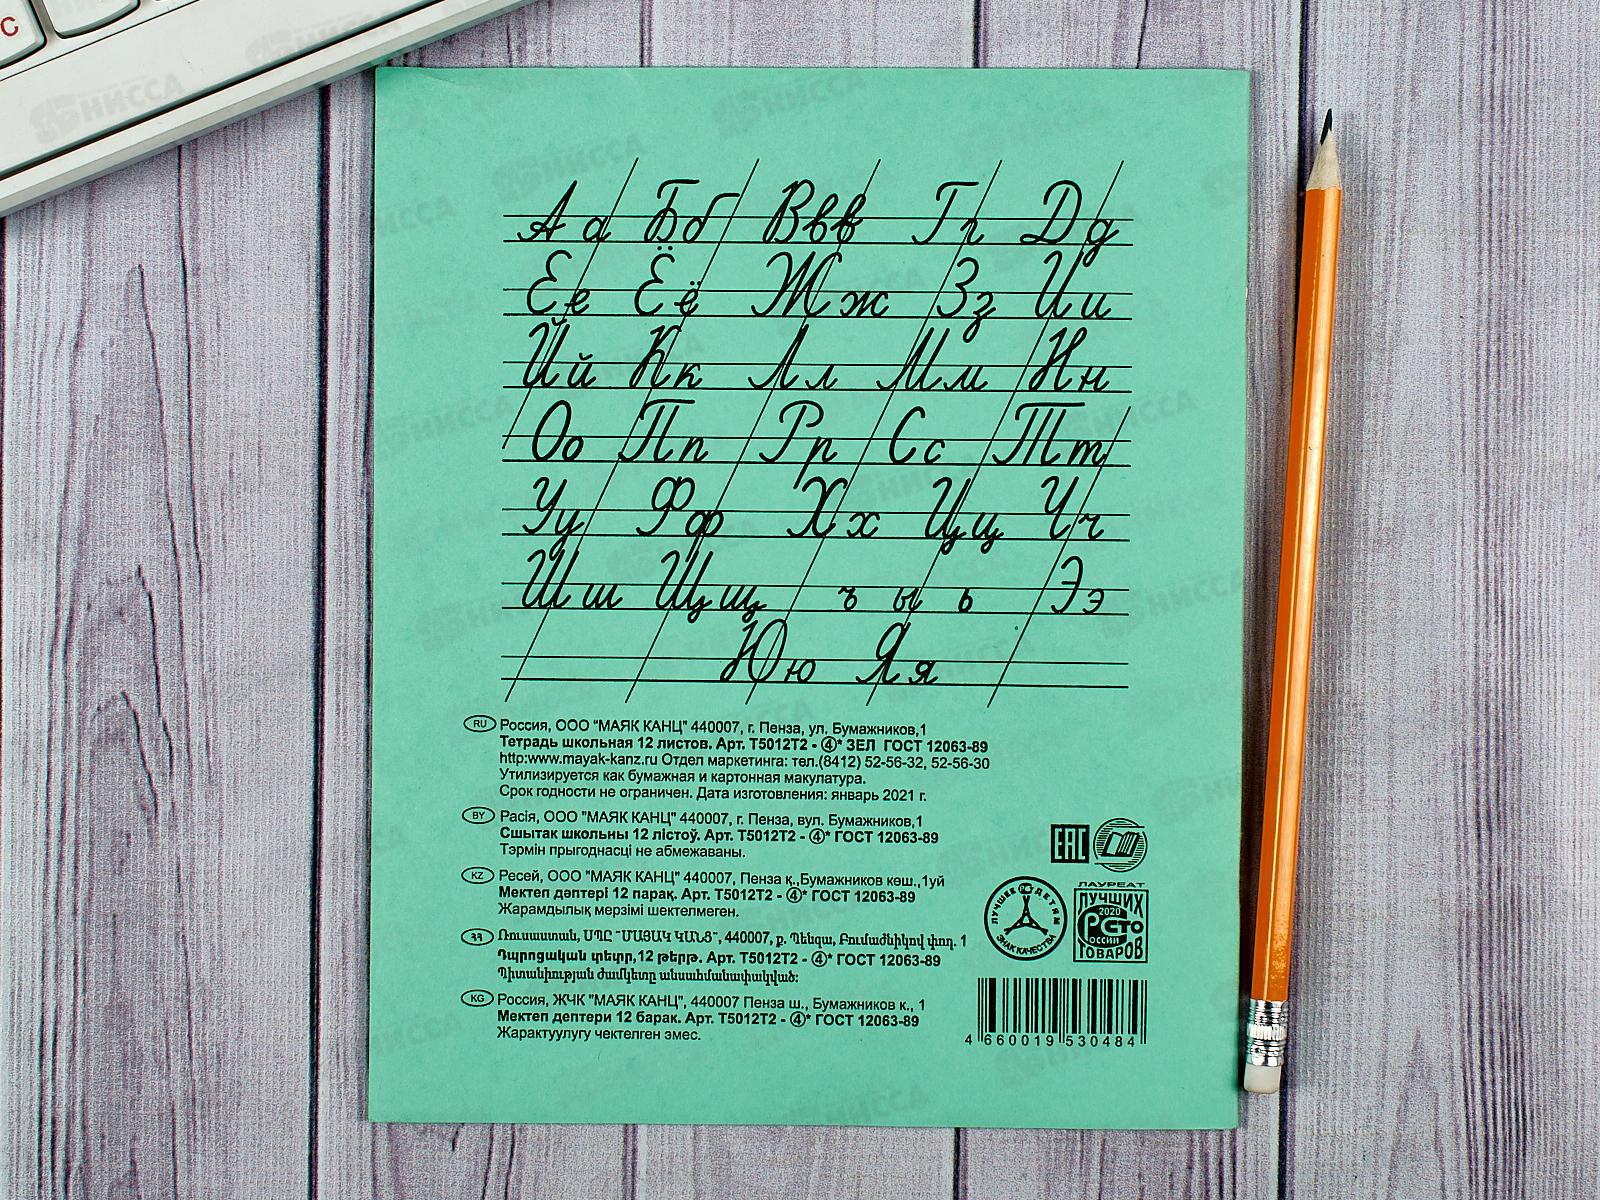 С
Аа Бб Ввв Гг Дд
Ее Ёё Жж Зз Ии
Йй Кк Лл Мм Нн
Оо Пп Рр Сс Тт
Уу Фф Хх Цц Чч
Шш Щщ ъ ы ь Ээ
Юю Яя
RU Россия, ООО "МАЯК КАНЦ" 440007, г. Пенза, ул. Бумажников,1
Тетрадь школьная 12 листов. Арт. Т5012Т2 - ④* ЗЕЛ ГОСТ 12063-89
http:www.mayak-kanz.ru Отдел маркетинга: тел.(8412) 52-56-32, 52-56-30
Утилизируется как бумажная и картонная макулатура.
Срок годности не ограничен. Дата изготовления: январь 2021 г.
BY Расія, ООО "МАЯК КАНЦ" 440007, г. Пенза, вул. Бумажников,1
Сшытак школьны 12 лістоў. Арт. Т5012Т2 - ④* ГОСТ 12063-89
Тэрмін прыгоднасці не абмежаваны.
KZ Ресей, ООО "МАЯК КАНЦ" 440007, Пенза қ.,Бумажников көш.,1үй
Мектеп дәптері 12 парақ. Арт. Т5012Т2 - ④* ГОСТ 12063-89
Жарамдылық мерзімі шектелмеген.
ՀՀ Ռուսաստան, ՍՊԸ "ՄԱՅԱԿ ԿԱՆՑ", 440007, ք. Պենզա, Բումաժնիկով փող. 1
Դպրոցական տետր,12 թերթ. Арт. Т5012Т2 - ④* ГОСТ 12063-89
Պիտանիության ժամկետը անսահմանափակված:
KG Россия, ЖЧК "МАЯК КАНЦ", 440007 Пенза ш., Бумажников к., 1
Мектеп дептери 12 барак. Арт. Т5012Т2 - ④* ГОСТ 12063-89
Жарактуулугу чектелген эмес.
EAC
ЛУЧШЕЕ ДЕТЯМ
ЗНАК КАЧЕСТВА
ЛАУРЕАТ
ЛУЧШИХ
2020
СТО
РОССИИ
ТОВАРОВ
4 660019 530484
НИССА